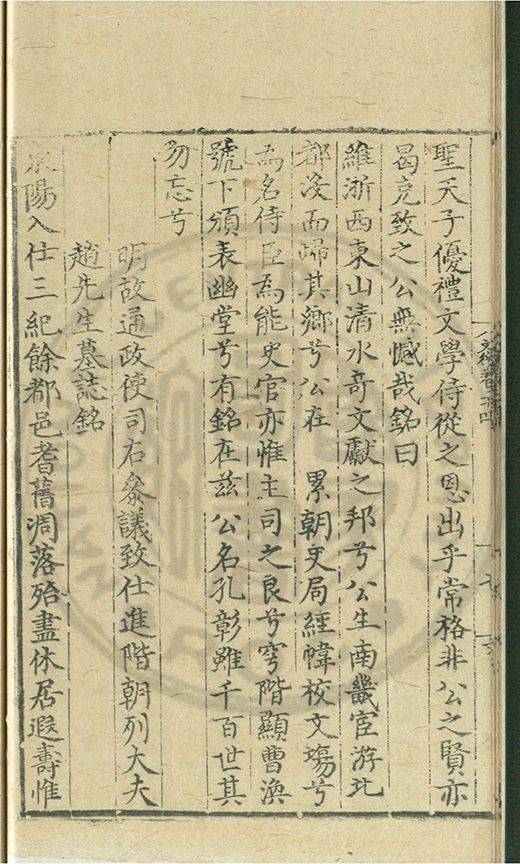 聖天子優禮文學侍從之恩出乎常格非公之賢亦
曷克致之公無憾哉銘曰
維浙西東山清水奇文獻之邦兮公生南畿宦游北
都沒而歸其鄉兮公在 累朝史局經幃校文塲兮
為名侍臣為能史官亦惟主司之良兮穹階顯曹渙
號下頒表幽堂兮有銘在茲公名孔彰雖千百世其
勿忘兮
明故通政使司右叅議致仕進階朝列大夫
趙先生墓誌銘
陽入仕三紀餘都邑耆舊凋落殆盡休居遐壽惟